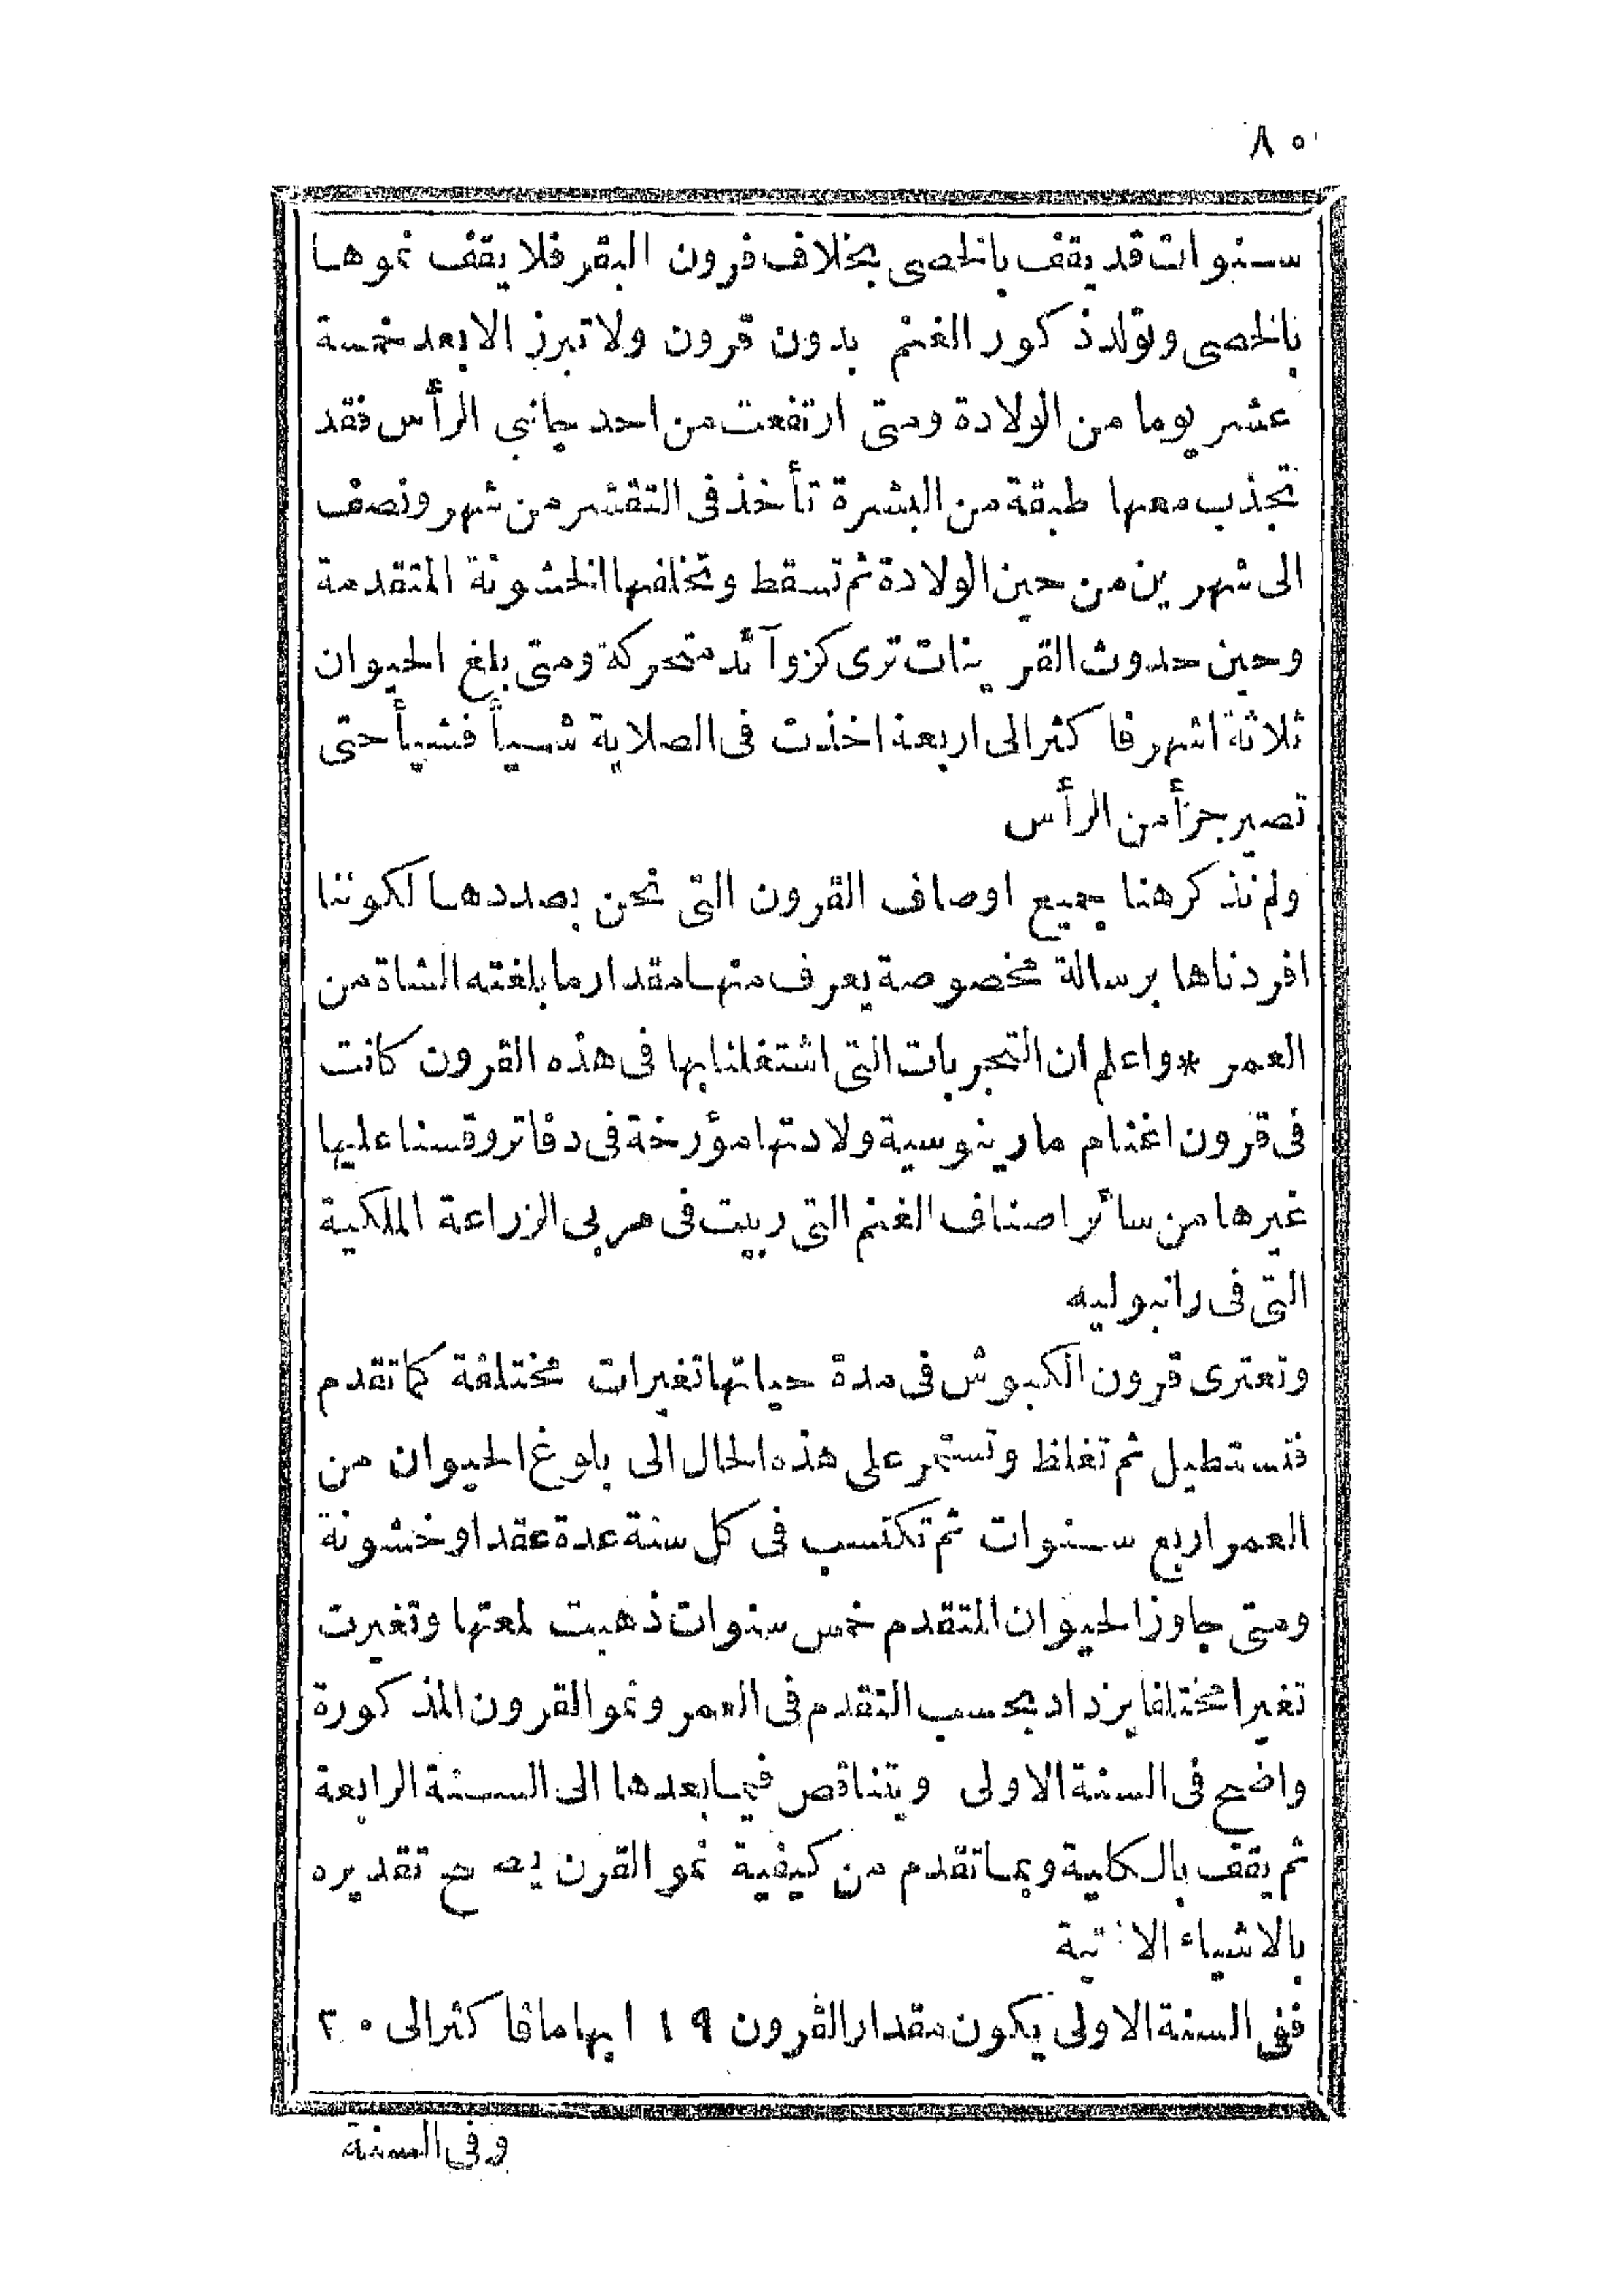 ٨٠
سنوات قد يقف بالخصى بخلاف قرون البقر فلا يقف نموها
بالخصى وتولد ذكور الغنم بدون قرون ولا تبرز الا بعد خمسة
عشر يوما من الولادة ومتى ارتفعت من احد جانبى الرأس فقد
تجذب معها طبقة من البشرة تأخذ فى التقشر من شهر ونصف
الى شهرين من حين الولادة ثم تسقط وتخلفها الخشونة المتقدمة
وحين حدوث القرينات ترى كزوآئد متحركة ومتى بلغ الحيوان
ثلاثة اشهر فاكثر الى اربعة اخذت فى الصلابة شيأ فشيأ حتى
تصير جزأ من الرأس
ولم نذكر هنا جميع اوصاف القرون التى نحن بصددها لكوننا
افردناها برسالة مخصوصة يعرف منها مقدار ما بلغته الشاة من
العمر * واعلم ان التجربات التى اشتغلنا بها فى هذه القرون كانت
فى قرون اغنام مارينوسية ولادتها مؤرخة فى دفاتر وقسنا عليها
غيرها من سائر اصناف الغنم التى ربيت فى مربى الزراعة الملكية
التى فى رانبوليه
وتعترى قرون الكبوش فى مدة حياتها تغيرات مختلفة كما تقدم
فتستطيل ثم تغلظ وتستمر على هذه الحال الى بلوغ الحيوان من
العمر اربع سنوات ثم تكتسب فى كل سنة عدة عقد او خشونة
ومتى جاوز الحيوان المتقدم خمس سنوات ذهبت لمعتها وتغيرت
تغيرا مختلفا يزداد بحسب التقدم فى العمر ونمو القرون المذكورة
واضح فى السنة الاولى ويتناقص فيما بعدها الى السنة الرابعة
ثم يقف بالكلية وبما تقدم من كيفية نمو القرن يصح تقديره
بالاشياء الاتية
ففى السنة الاولى يكون مقدار القرون ١٩ ابهاما فاكثر الى ٢٠
وفى السنة